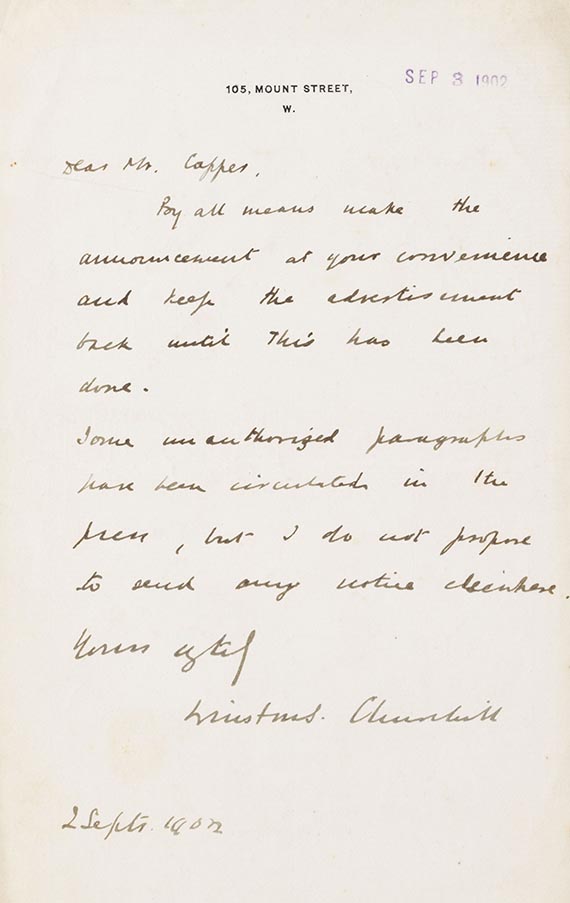 105, MOUNT STREET,
W.
SEP 3 1902
Dear Mr. Capper,
By all means make the
announcement at your convenience
and keep the advertisement
back until this has been
done.
Some unauthorised paragraphs
have been circulated in the
press, but I do not propose
to send any notice elsewhere.
Yours
Winston S. Churchill
2 Septr. 1902